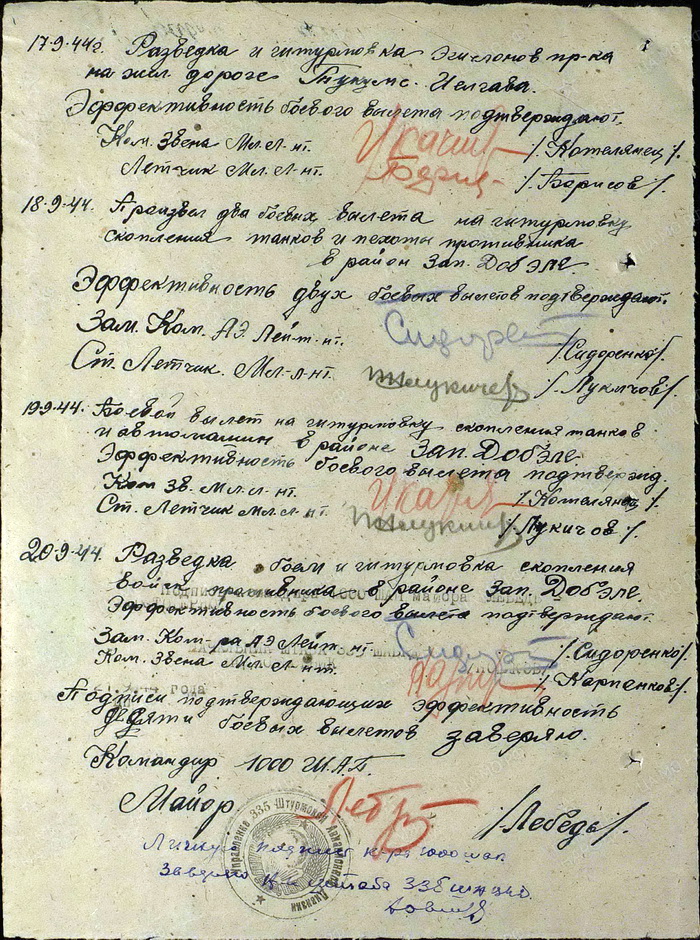 17-9-44г. Разведка и штурмовка эшелонов пр-ка
на жел дороге Тукумс-Иелгава.
Эффективность боевого вылета подтверждают.
Ком. Звена Мл. л-нт. /Котелянец/.
Летчик Мл. л-нт. /Борисов/.
18-9-44. Произвел два боевых вылета на штурмовку
скопления танков и пехоты противника
в район Зап. Добэле.
Эффективность двух боевых вылетов подтверждают.
Зам. Ком. АЭ Лей-т-нт. Сидорен /Сидоренко/.
Ст. Летчик Мл-л-нт. /Лукичов/.
19-9-44. Боевой вылет на штурмовку скопления танков
и автомашин в районе Зап. Добэле
Эффективность боевого вылета подтвержд.
Ком Зв. Мл. л-нт. /Котелянец/.
Ст. Летчик Мл. л-нт. /Лукичов/.
20-9-44. Разведка боем и штурмовка скопления
войск противника в районе Зап. Добэле.
Эффективность боевого вылета подтверждают.
Зам. Ком-ра АЭ Лейт-нт. /Сидоренко/
Ком. Звена Мл. л-нт. /Карпенков/
года
Подписи подтверждающих эффективность
десяти боевых вылетов заверяю.
Командир 1000 ШАП.
Майор /Лебедь/.
Управление 335 Штурмовой Авиационной Дивизии
Личную подпись к-ра 1000 шап
Заверяю штаба 335 шад